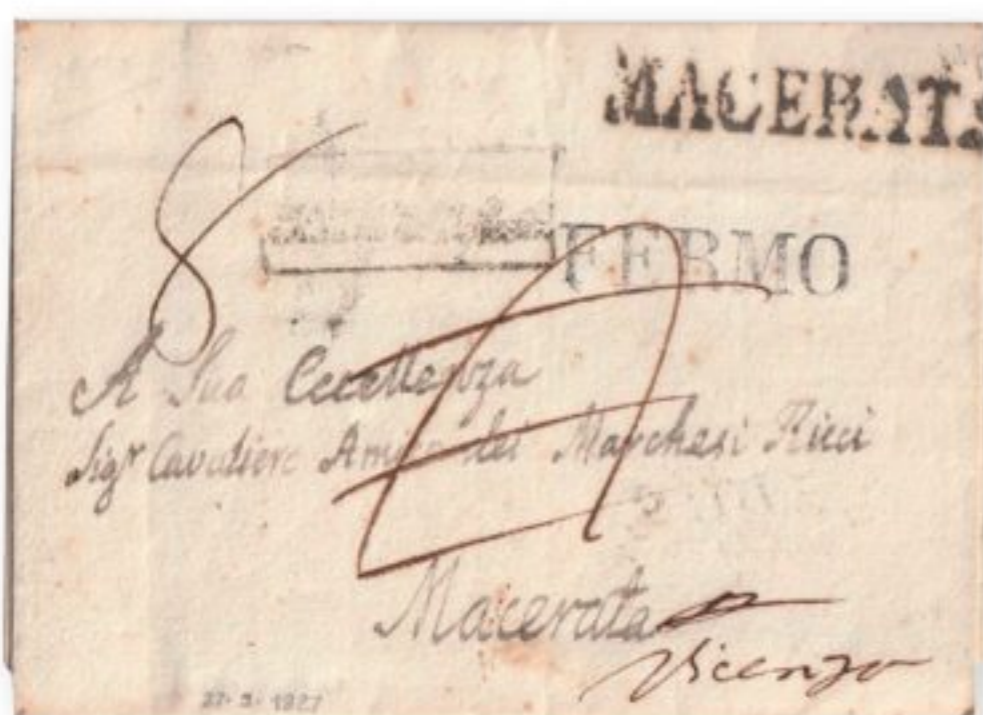 MACERATA
8
FERMO
A Sua Eccellenza
Sigr Cavaliere Amico dei Marchesi Ricci
Macerata
Vicenza
27-9-1827